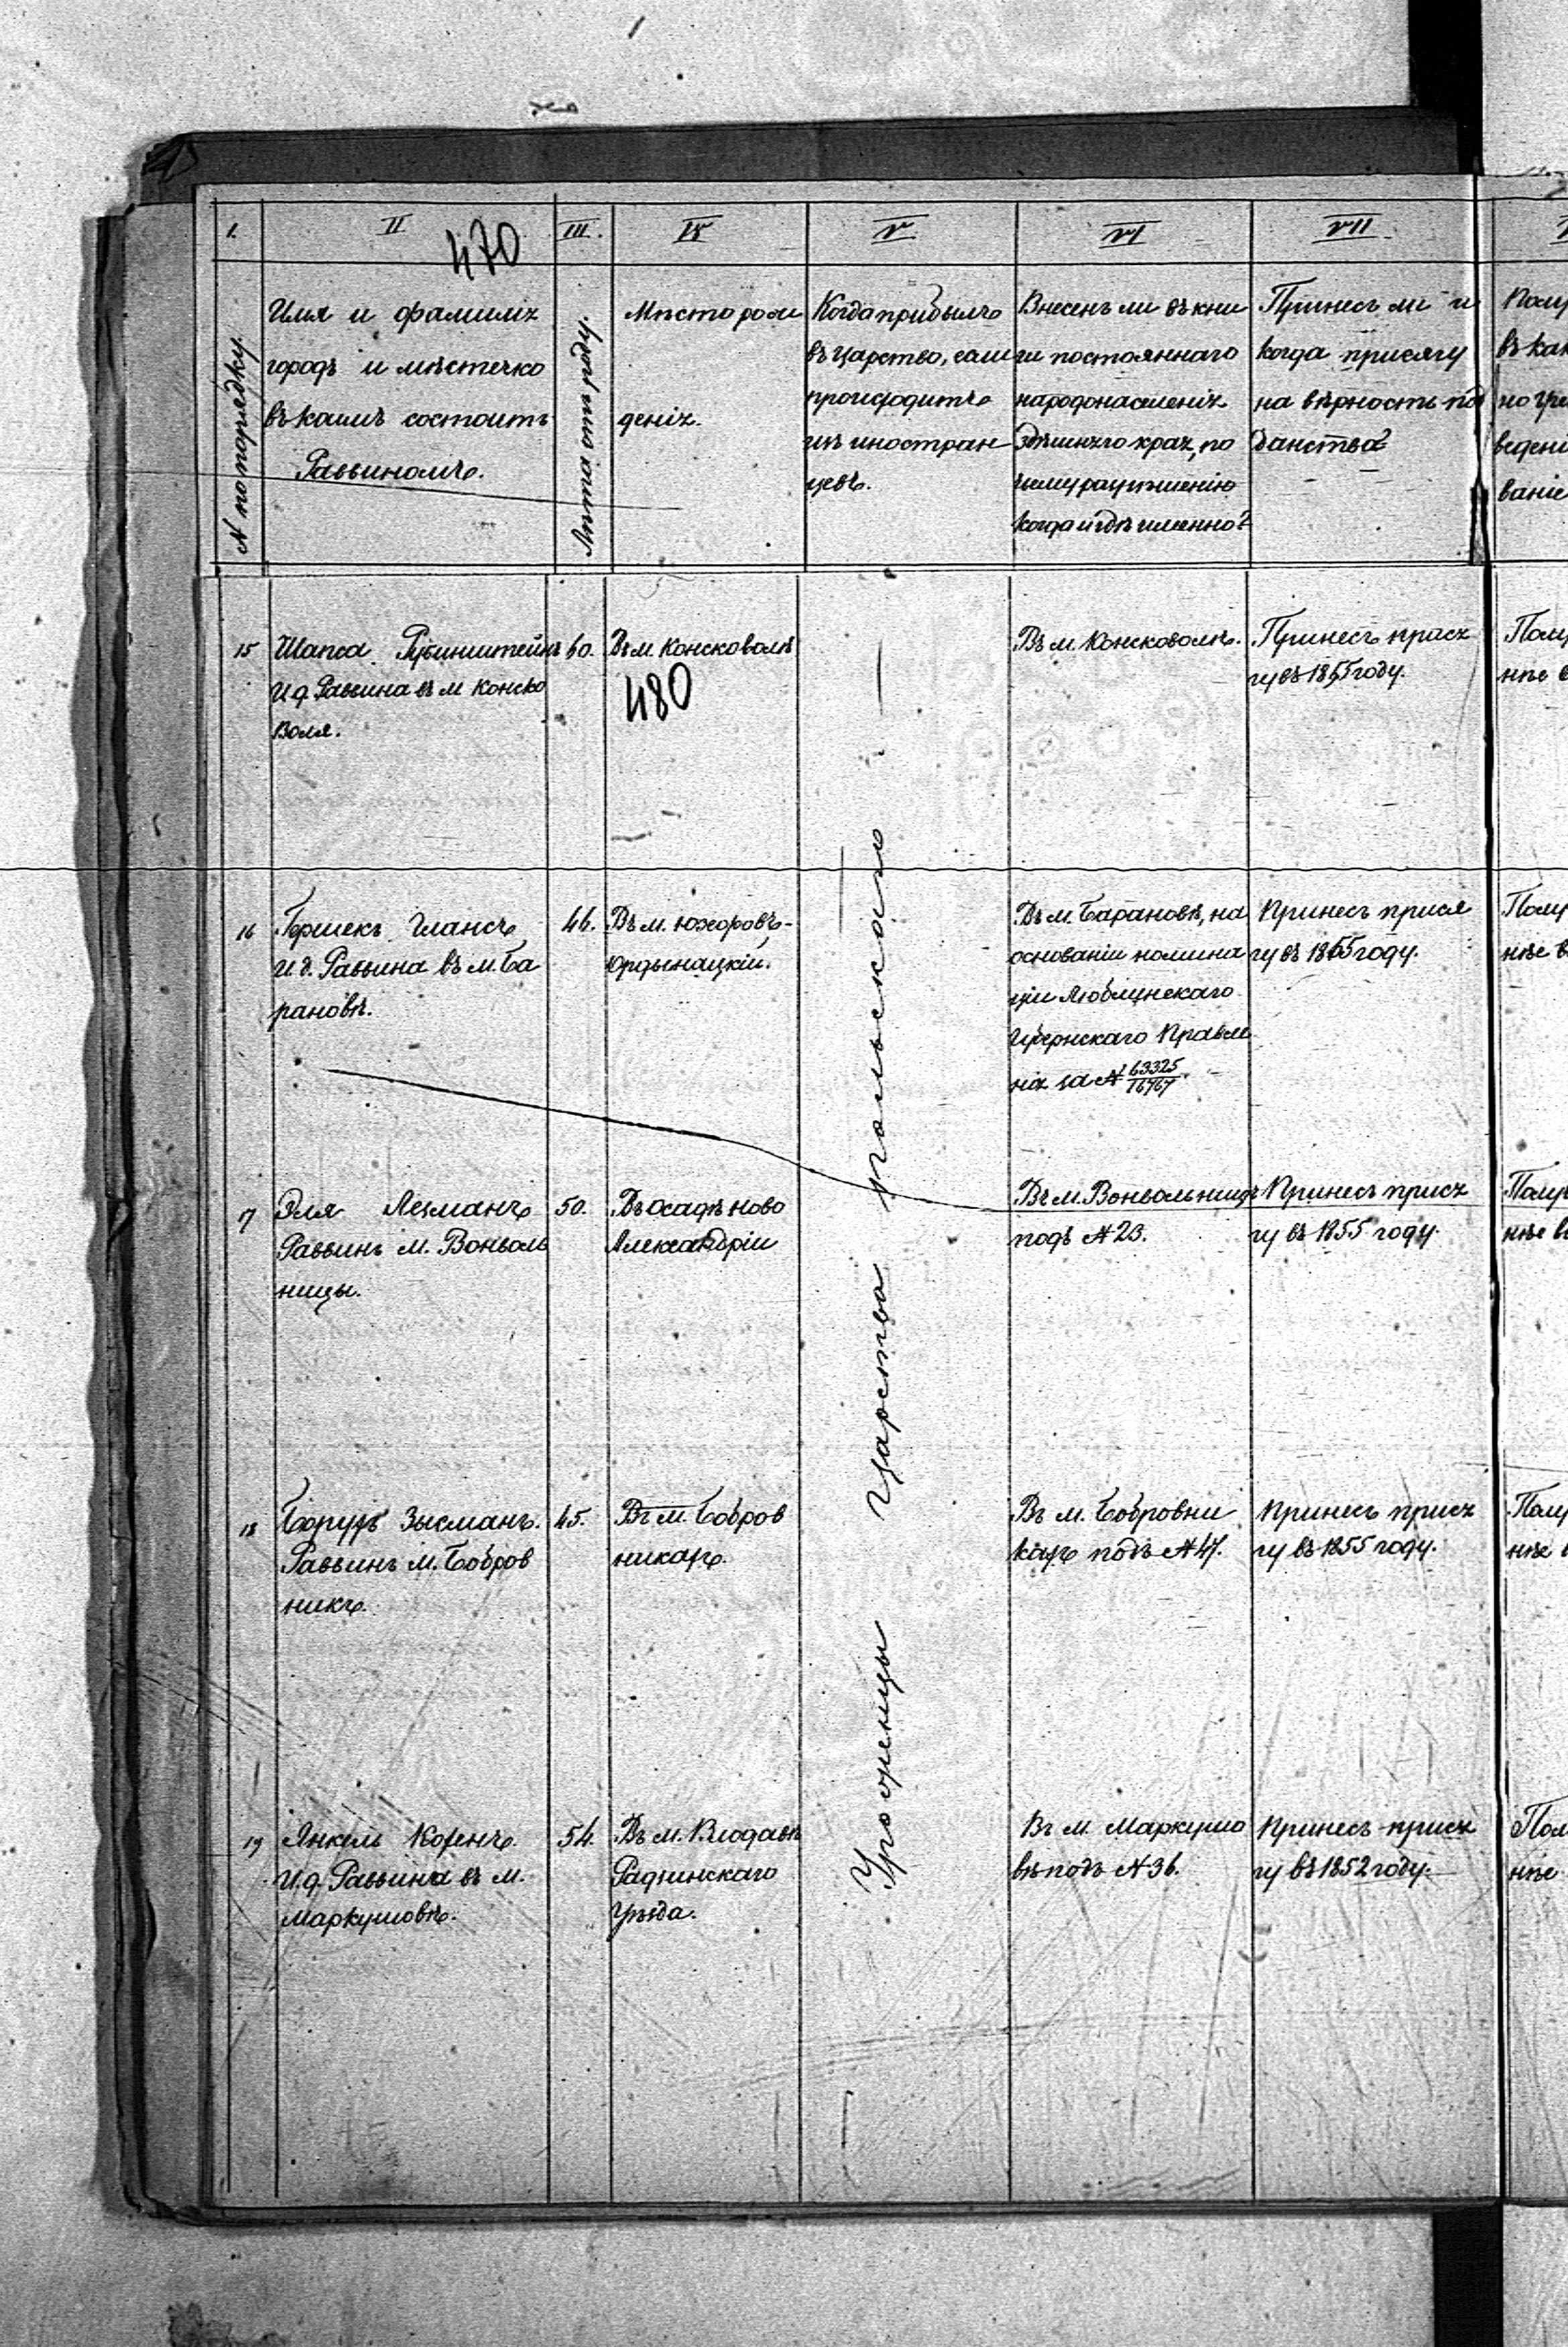 I. II III. IV V VI VII
470
№ по порядку.
Имя и фамилія
городъ и мѣстечко
въ коимъ состоитъ
Раввиномъ.
Мѣсто рож
денія.
Когда прибылъ
въ царство, если
происходитъ
изъ иностран
цевъ.
Внесенъ ли въ кни
ги постояннаго
народонаселенія
здѣшняго края, по
чьему разрѣшенію
когда и гдѣ именно?
Принесъ ли и
когда присягу
на вѣрность под
данства?
15
Шапса Рубинштейнъ
И д Раввина въ м Конско
воля.
60.
Въ м. Консковолѣ
480
Въ м. Консковолѣ.
Принесъ прися
гу въ 1855 году.
16
Гершекъ Глансъ
И. д. Раввина въ м. Ба
рановѣ.
46.
Въ м. Юзефовъ-
Ордынацкій.
Въ м. Барановѣ, на
основаніи номина
ціи Люблинскаго
Губернскаго Правле
нія за № 63325/16767.
Принесъ прися
гу въ 1855 году.
17
Эля Лезманъ
Раввинъ м. Вонволь
ницы.
50.
Въ осадѣ Ново
Александріи
Въ м. Вонвольницѣ
подъ № 23.
Принесъ прися
гу въ 1855 году.
18
Борухъ Зысманъ.
Раввинъ м. Бобров
никъ.
45.
Въ м. Бобров
никахъ.
Въ м. Бобровни
кахъ подъ № 47.
Принесъ прися
гу въ 1855 году.
19
Янкель Коренъ.
И. д. Раввина въ м.
Маркушовѣ.
54.
Въ м. Влодавѣ
Радинскаго
уѣзда.
Въ м. Маркушо
вѣ подъ № 36.
Принесъ прися
гу въ 1852 году.
Уроженцы Царства Польскаго